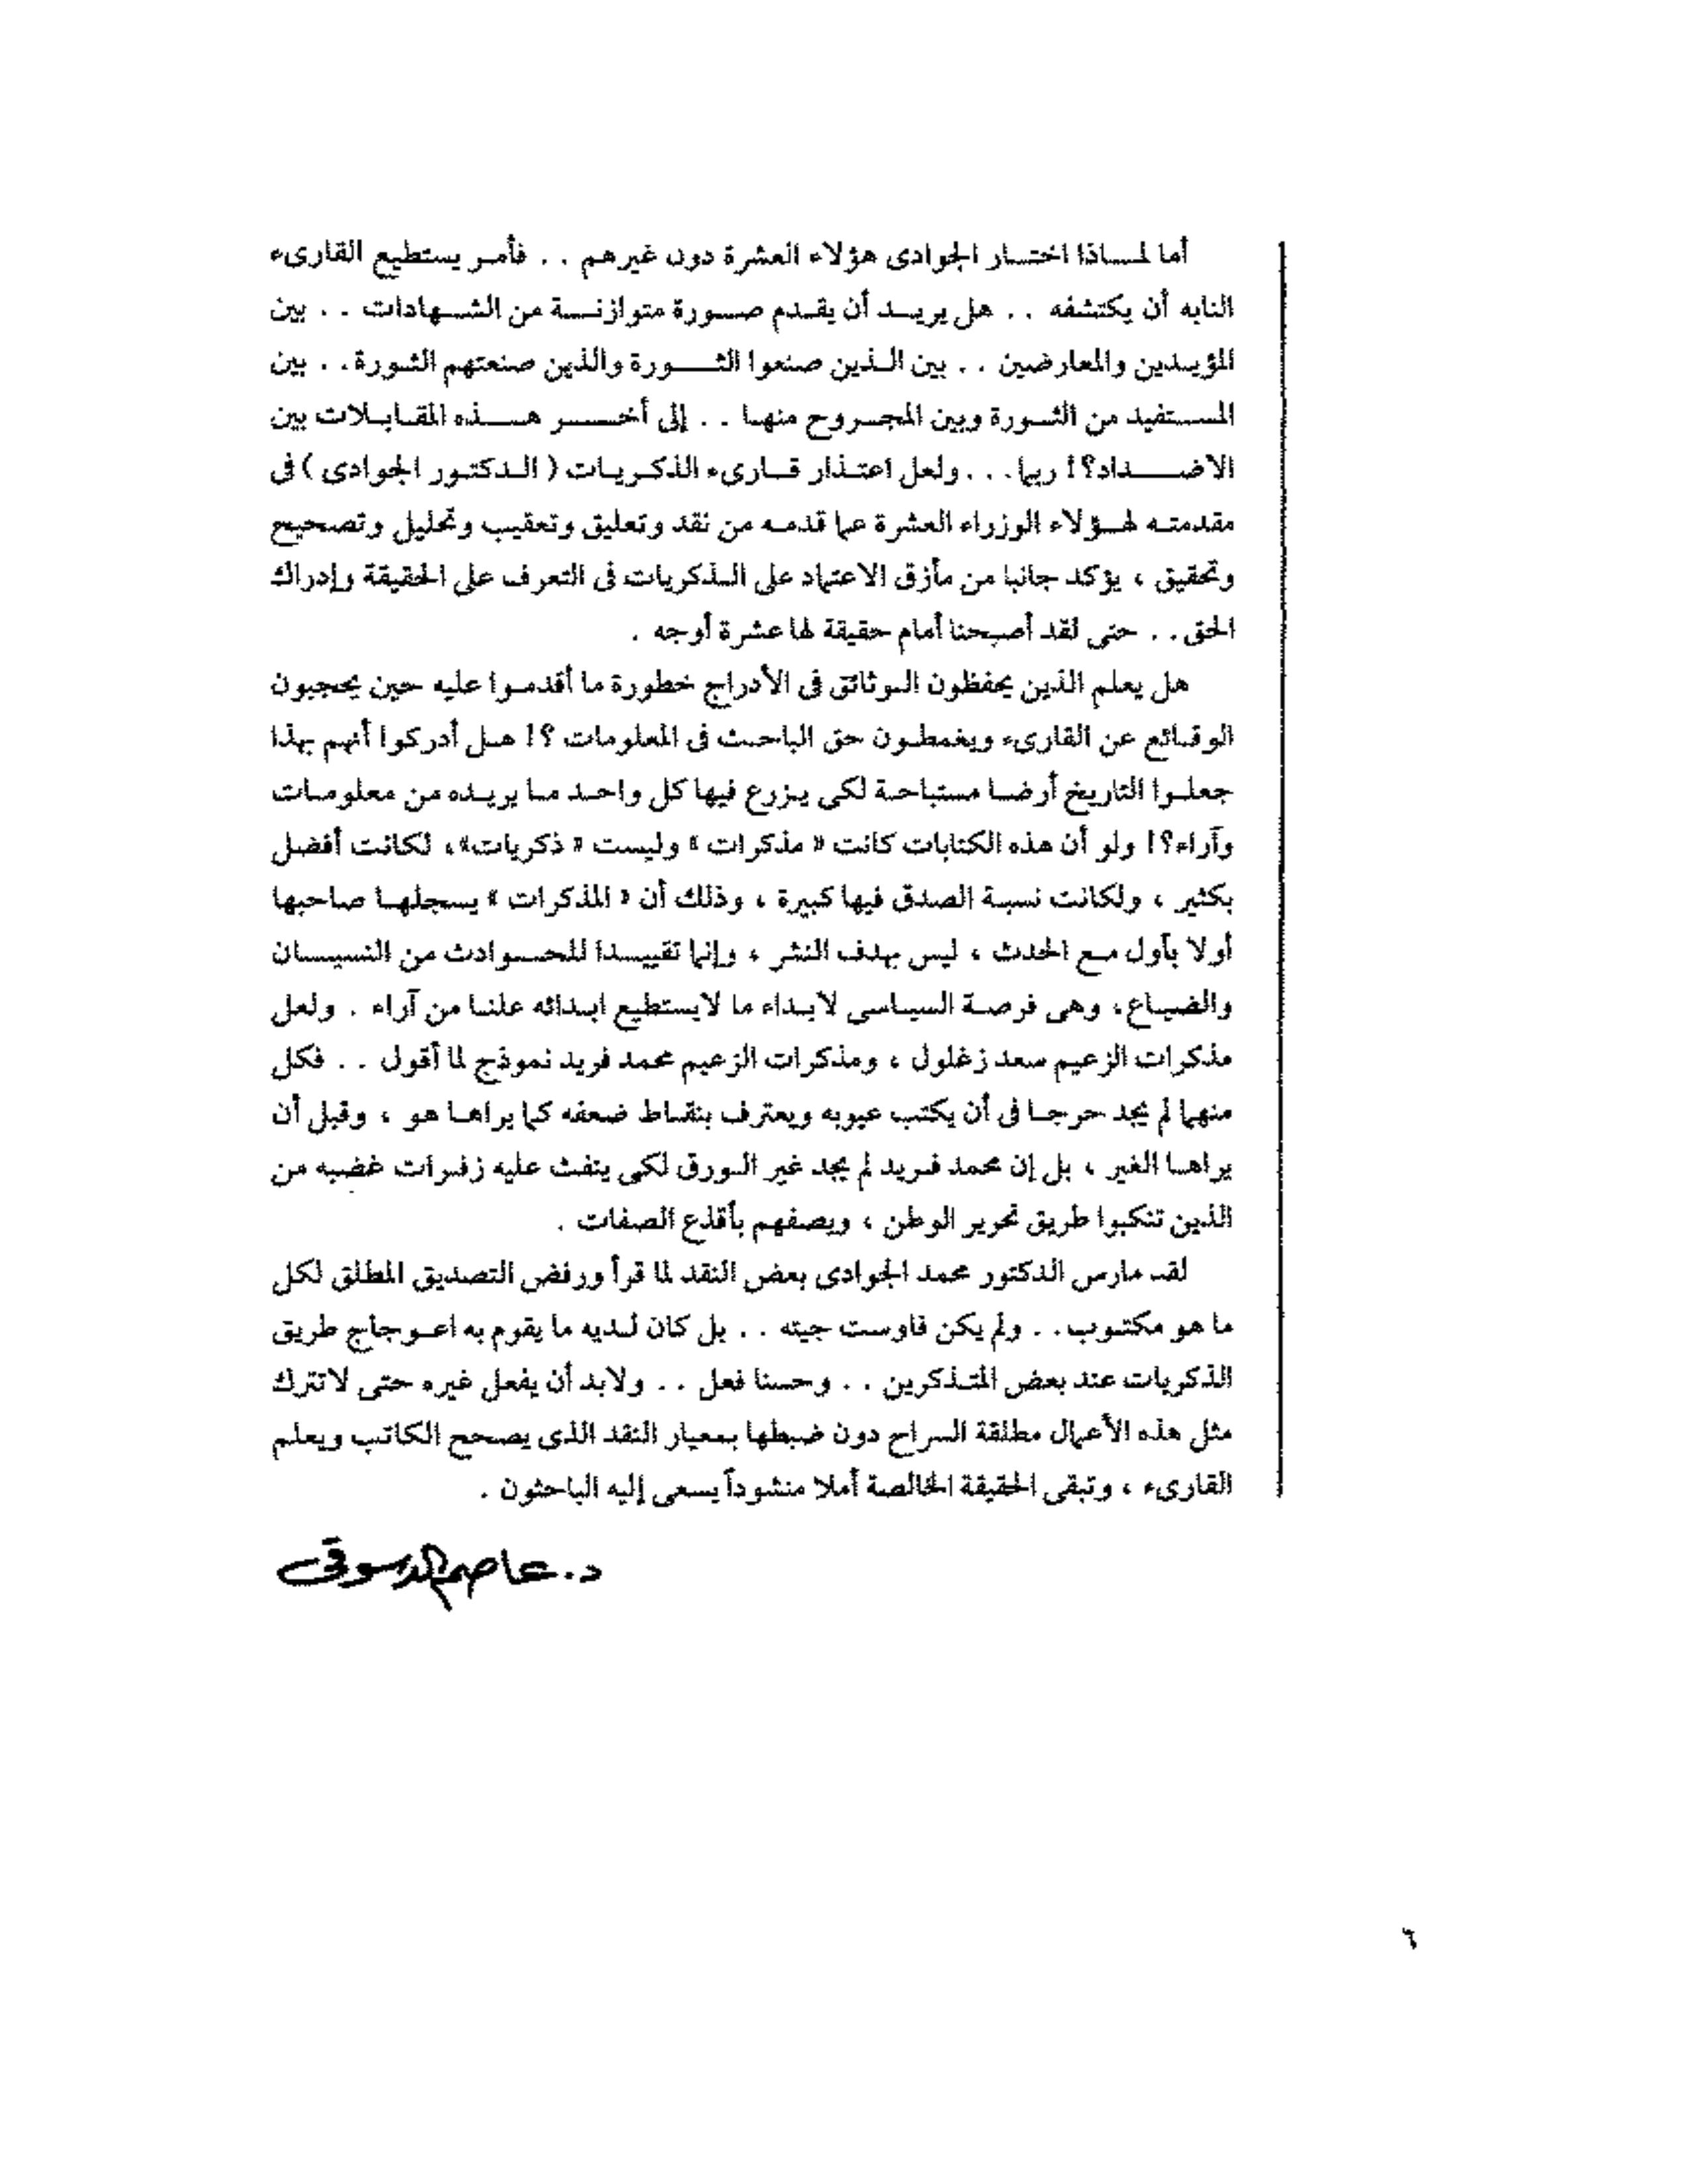 أما لماذا اختار الجوادى هؤلاء العشرة دون غيرهم . . فأمر يستطيع القارىء
النابه أن يكتشفه . . هل يريد أن يقدم صورة متوازنة من الشهادات . . بين
المؤيدين والمعارضين . . بين الذين صنعوا الثورة والذين صنعتهم الثورة . . بين
المستفيد من الثورة وبين المجروح منها . . إلى أخر هذه المقابلات بين
الاضداد؟! ربما . . . ولعل اعتذار قارىء الذكريات ( الدكتور الجوادى ) فى
مقدمته لهؤلاء الوزراء العشرة عما قدمه من نقد وتعليق وتعقيب وتحليل وتصحيح
وتحقيق ، يؤكد جانبا من مأزق الاعتماد على الذكريات فى التعرف على الحقيقة وإدراك
الحق . . حتى لقد أصبحنا أمام حقيقة لها عشرة أوجه .
هل يعلم الذين يحفظون الوثائق فى الأدراج خطورة ما أقدموا عليه حين يحجبون
الوقائع عن القارىء ويغمطون حق الباحث فى المعلومات ؟! هل أدركوا أنهم بهذا
جعلوا التاريخ أرضا مستباحة لكى يزرع فيها كل واحد ما يريده من معلومات
وآراء؟! ولو أن هذه الكتابات كانت « مذكرات » وليست « ذكريات»، لكانت أفضل
بكثير ، ولكانت نسبة الصدق فيها كبيرة ، وذلك أن « المذكرات » يسجلها صاحبها
أولا بأول مع الحدث ، ليس بهدف النشر ، وإنما تقييدا للحوادث من النسيان
والضياع، وهى فرصة السياسى لابداء ما لايستطيع ابدائه علنا من آراء . ولعل
مذكرات الزعيم سعد زغلول ، ومذكرات الزعيم محمد فريد نموذج لما أقول . . فكل
منهما لم يجد حرجا فى أن يكتب عيوبه ويعترف بنقاط ضعفه كما يراها هو ، وقبل أن
يراها الغير ، بل إن محمد فريد لم يجد غير الورق لكى ينفث عليه زفرات غضبه من
الذين تنكبوا طريق تحرير الوطن ، ويصفهم بأقذع الصفات .
لقد مارس الدكتور محمد الجوادى بعض النقد لما قرأ ورفض التصديق المطلق لكل
ما هو مكتوب . . ولم يكن فاوست جيته . . بل كان لديه ما يقوم به اعوجاج طريق
الذكريات عند بعض المتذكرين . . وحسنا فعل . . ولابد أن يفعل غيره حتى لاتترك
مثل هذه الأعمال مطلقة السراح دون ضبطها بمعيار النقد الذى يصحح الكاتب ويعلم
القارىء ، وتبقى الحقيقة الخالصة أملا منشوداً يسعى إليه الباحثون .
د. عاصم الدسوقى
٦